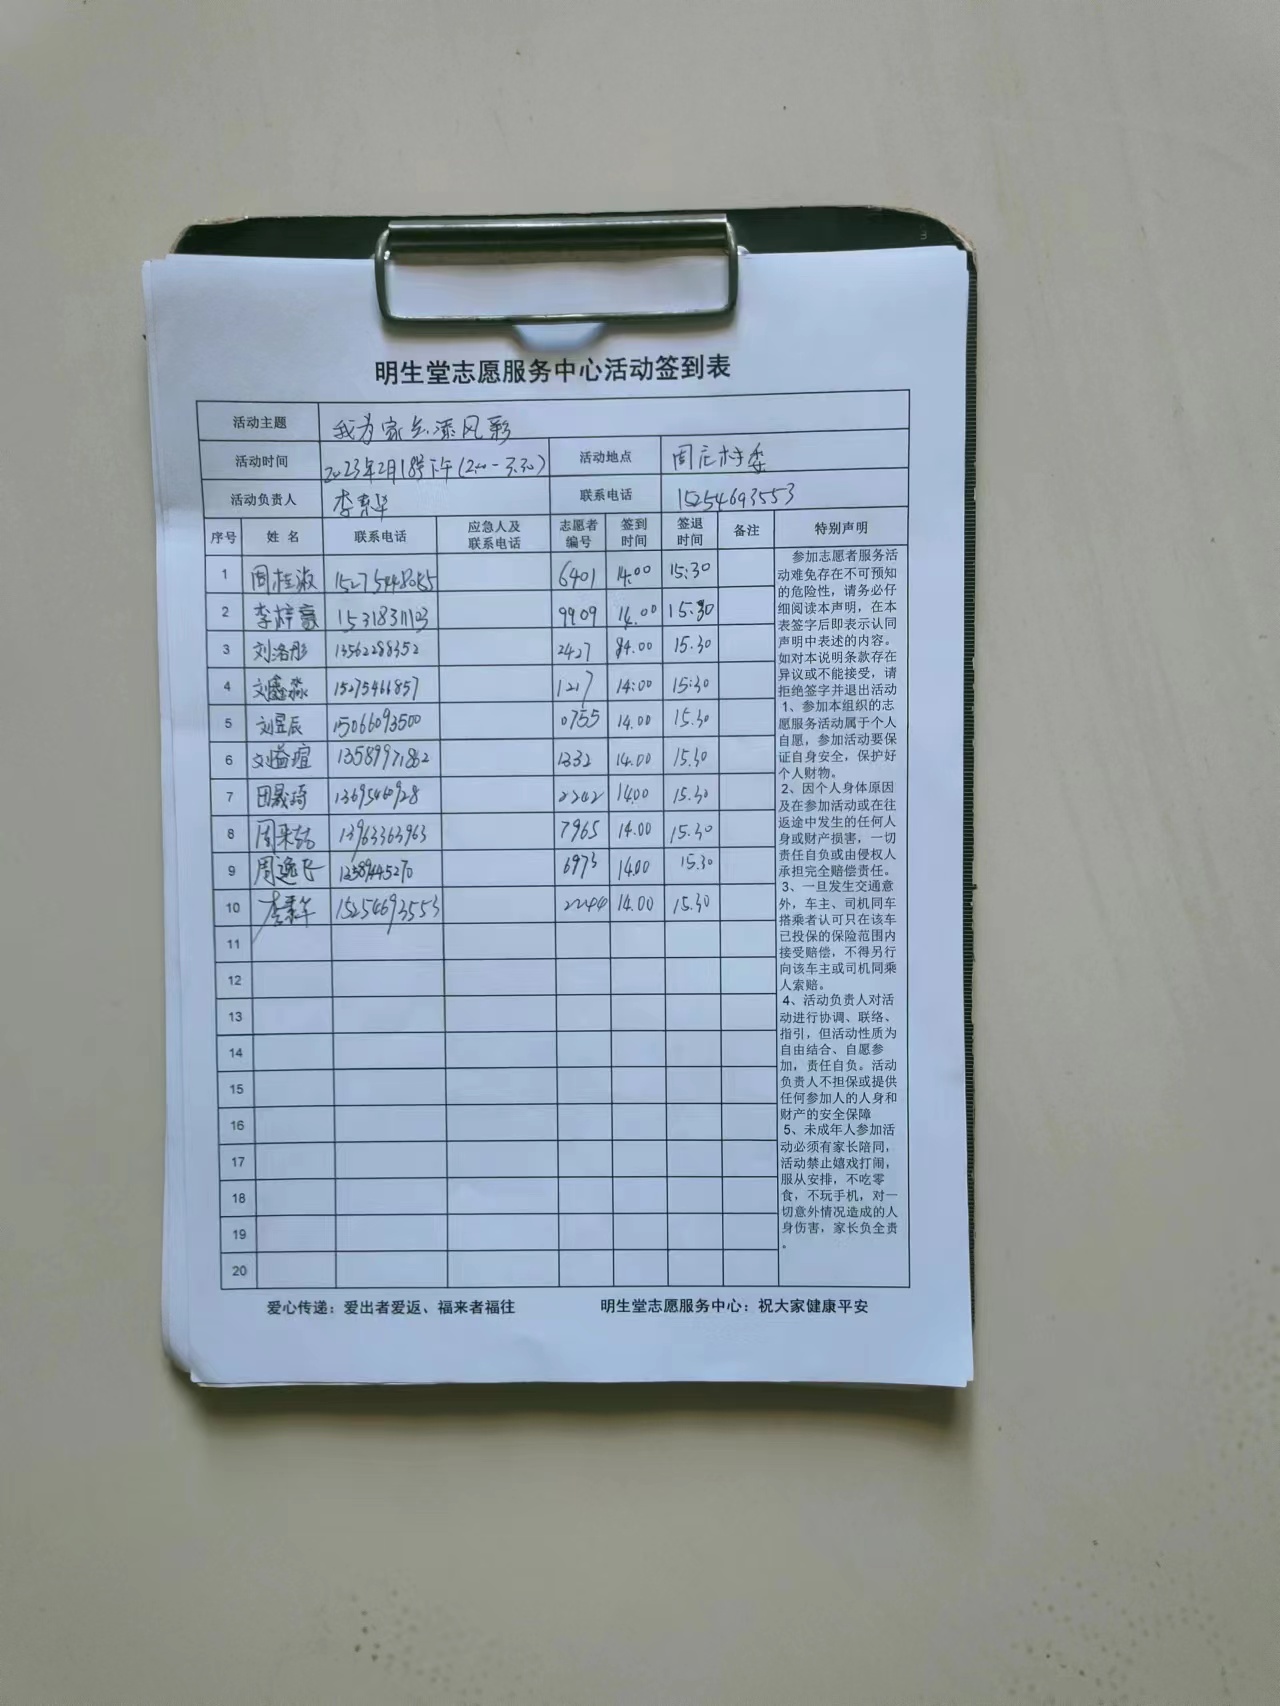 明生堂志愿服务中心活动签到表
活动主题 我为家乡添风彩
活动时间 2023年2月18号下午(2:00-3:30) 活动地点 周庄村委
活动负责人 李秉华 联系电话 15254693553
序号 姓名 联系电话 应急人及联系电话 志愿者编号 签到时间 签退时间 备注 特别声明
1 周桂淑 6401 14:00 15:30
2 李梓豪 15318311103 9909 14.00 15:30
3 刘洛彤 13562288352 2427 14.00 15.30
4 刘鑫淼 15275466857 1217 14:00 15:30
5 刘昱辰 15066093500 0755 14.00 15.30
6 刘益瑄 1332 14.00 15.30
7 田晟琦 2242 14.00 15.30
8 周 13963363963 7965 14.00 15.30
9 周逸飞 6973 14.00 15.30
10 李秉华 15254693553 2244 14.00 15.30
11
12
13
14
15
16
17
18
19
20
参加志愿者服务活
动难免存在不可预知
的危险性，请务必仔
细阅读本声明，在本
表签字后即表示认同
声明中表述的内容。
如对本说明条款存在
异议或不能接受，请
拒绝签字并退出活动
1、参加本组织的志
愿服务活动属于个人
自愿，参加活动要保
证自身安全，保护好
个人财物。
2、因个人身体原因
及在参加活动或在往
返途中发生的任何人
身或财产损害，一切
责任自负或由侵权人
承担完全赔偿责任。
3、一旦发生交通意
外，车主、司机同车
搭乘者认可只在该车
已投保的保险范围内
接受赔偿，不得另行
向该车主或司机同乘
人索赔。
4、活动负责人对活
动进行协调、联络、
指引，但活动性质为
自由结合、自愿参
加，责任自负。活动
负责人不担保或提供
任何参加人的人身和
财产的安全保障
5、未成年人参加活
动必须有家长陪同，
活动禁止嬉戏打闹，
服从安排，不吃零
食，不玩手机，对一
切意外情况造成的人
身伤害，家长负全责
。
爱心传递：爱出者爱返、福来者福往 明生堂志愿服务中心：祝大家健康平安